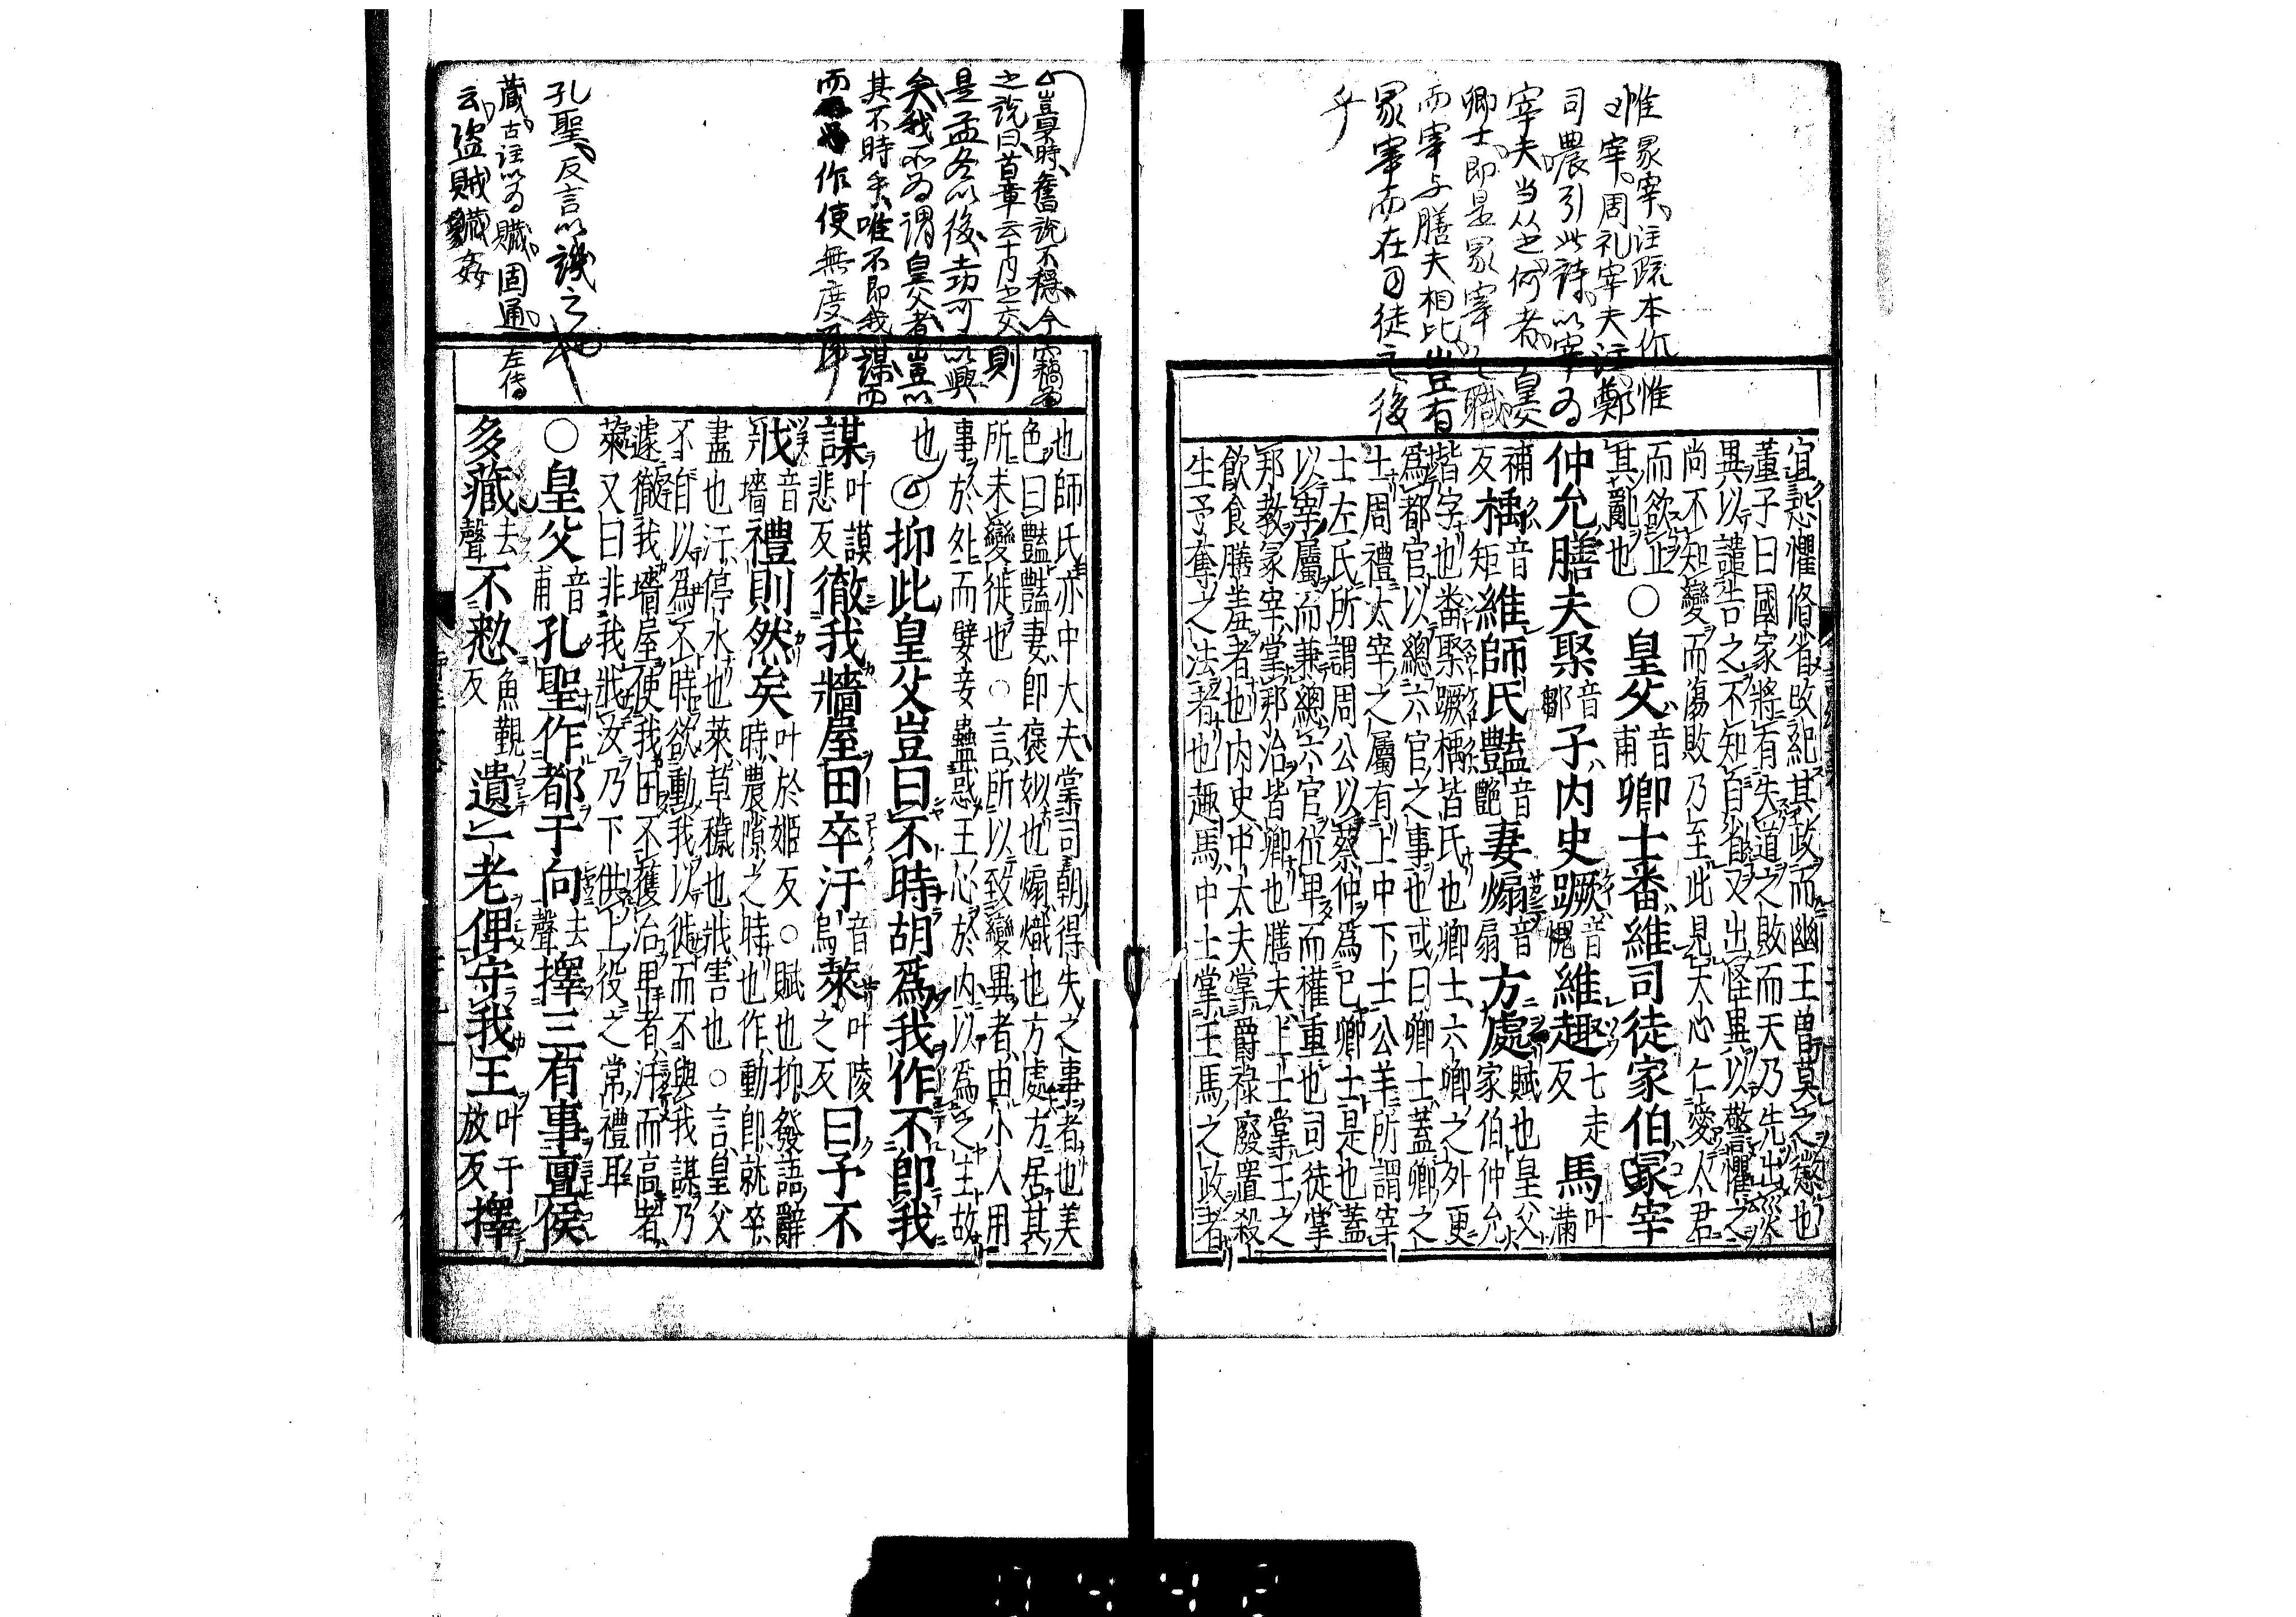 惟冢宰、注疏本作惟
宰、周礼宰夫注鄭
司農引此詩、以宰為
宰夫、当从之、何者、皇父
卿士、即是冢宰之職
而宰与膳夫相比、豈有
冢宰而在司徒之後
乎
宜恐懼脩省改紀其政而幽王曾莫之懲也
董子曰國家將有失道之敗而天乃先出災
異以譴告之不知自省又出怪異以警懼之
尚不知變而傷敗乃至此見天心仁愛人君
而欲止其亂也○皇父音甫卿士番維司徒家伯冢宰
仲允膳夫棸音鄒子内史蹶音愧維趣七走反馬叶滿
補反楀音矩維師氏豔音艷妻煽音扇方處賦也皇父家伯仲允
皆字也番棸蹶楀皆氏也卿士六卿之外更
爲都官以總六官之事也或曰卿士蓋卿之
士周禮太宰之屬有上中下士公羊所謂宰
士左氏所謂周公以蔡仲爲己卿士是也蓋
以宰屬而兼總六官位卑而權重也司徒掌
邦教冢宰掌邦治皆卿也膳夫上士掌王之
飲食膳羞者也内史中大夫掌爵祿廢置殺
生予奪之法者也趣馬中士掌王馬之政者
豈不時、舊説不穩、今
之説曰、首章云十月之交、則
是孟冬以後、
矣、我所為謂皇父者豈以
其不時乎、唯不即我謀而
而作使無度耳
孔聖、反言以譏之也
藏、古注以為贓、固通、左傳
云、盜賊藏姦
也師氏亦中大夫掌司朝得失之事者也美
色曰豔豔妻即褒姒也煽熾也方處方居其
所未變徙也○言所以致變異者由小人用
事於外而嬖妾蠱惑王心於内以爲之主故
也○抑此皇父豈曰不時胡爲我作不即我
謀叶謨悲反徹我牆屋田卒汙音烏萊叶陵之反曰予不
戕音墻禮則然矣叶於姬反○賦也抑發語辭時農隙之時也作動即就卒
盡也汙停水也萊草穢也戕害也○言皇父
不自以爲不時欲動我以徙而不與我謀乃
遽徹我牆屋使我田不獲治卑者汙而高者
萊又曰非我戕汝乃下供上役之常禮耳
○皇父音甫孔聖作都于向去聲擇三有事亶侯
多藏去聲不憖魚覲反遺一老俾守我王叶于放反擇